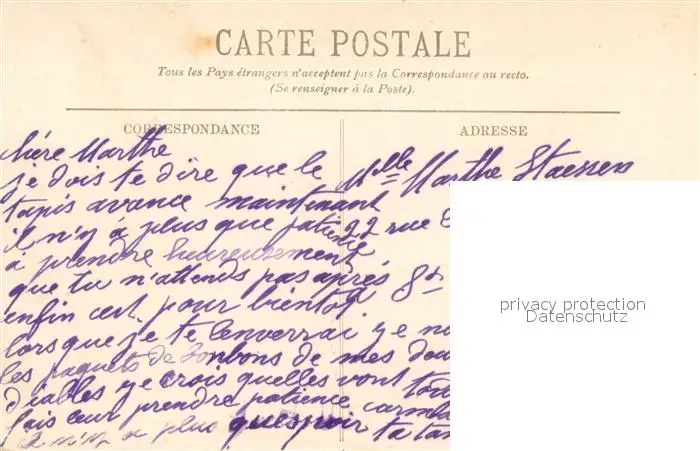 CARTE POSTALE
Tous les Pays étrangers n'acceptent pas la Correspondance au recto.
(Se renseigner à la Poste).
CORRESPONDANCE
ADRESSE
chère Marthe
je dois te dire que le
tapis avance maintenant
il n'y à plus que patience
à prendre heureusement
que tu n'attends pas aprés
enfin cest pour bientot
lorsque je te lenverrai
les paquets de bonbons de mes
diables je crois quelles vont
fais leur prendre patience
plus
Mlle Marthe Staessen
22 rue
privacy protection
Datenschutz